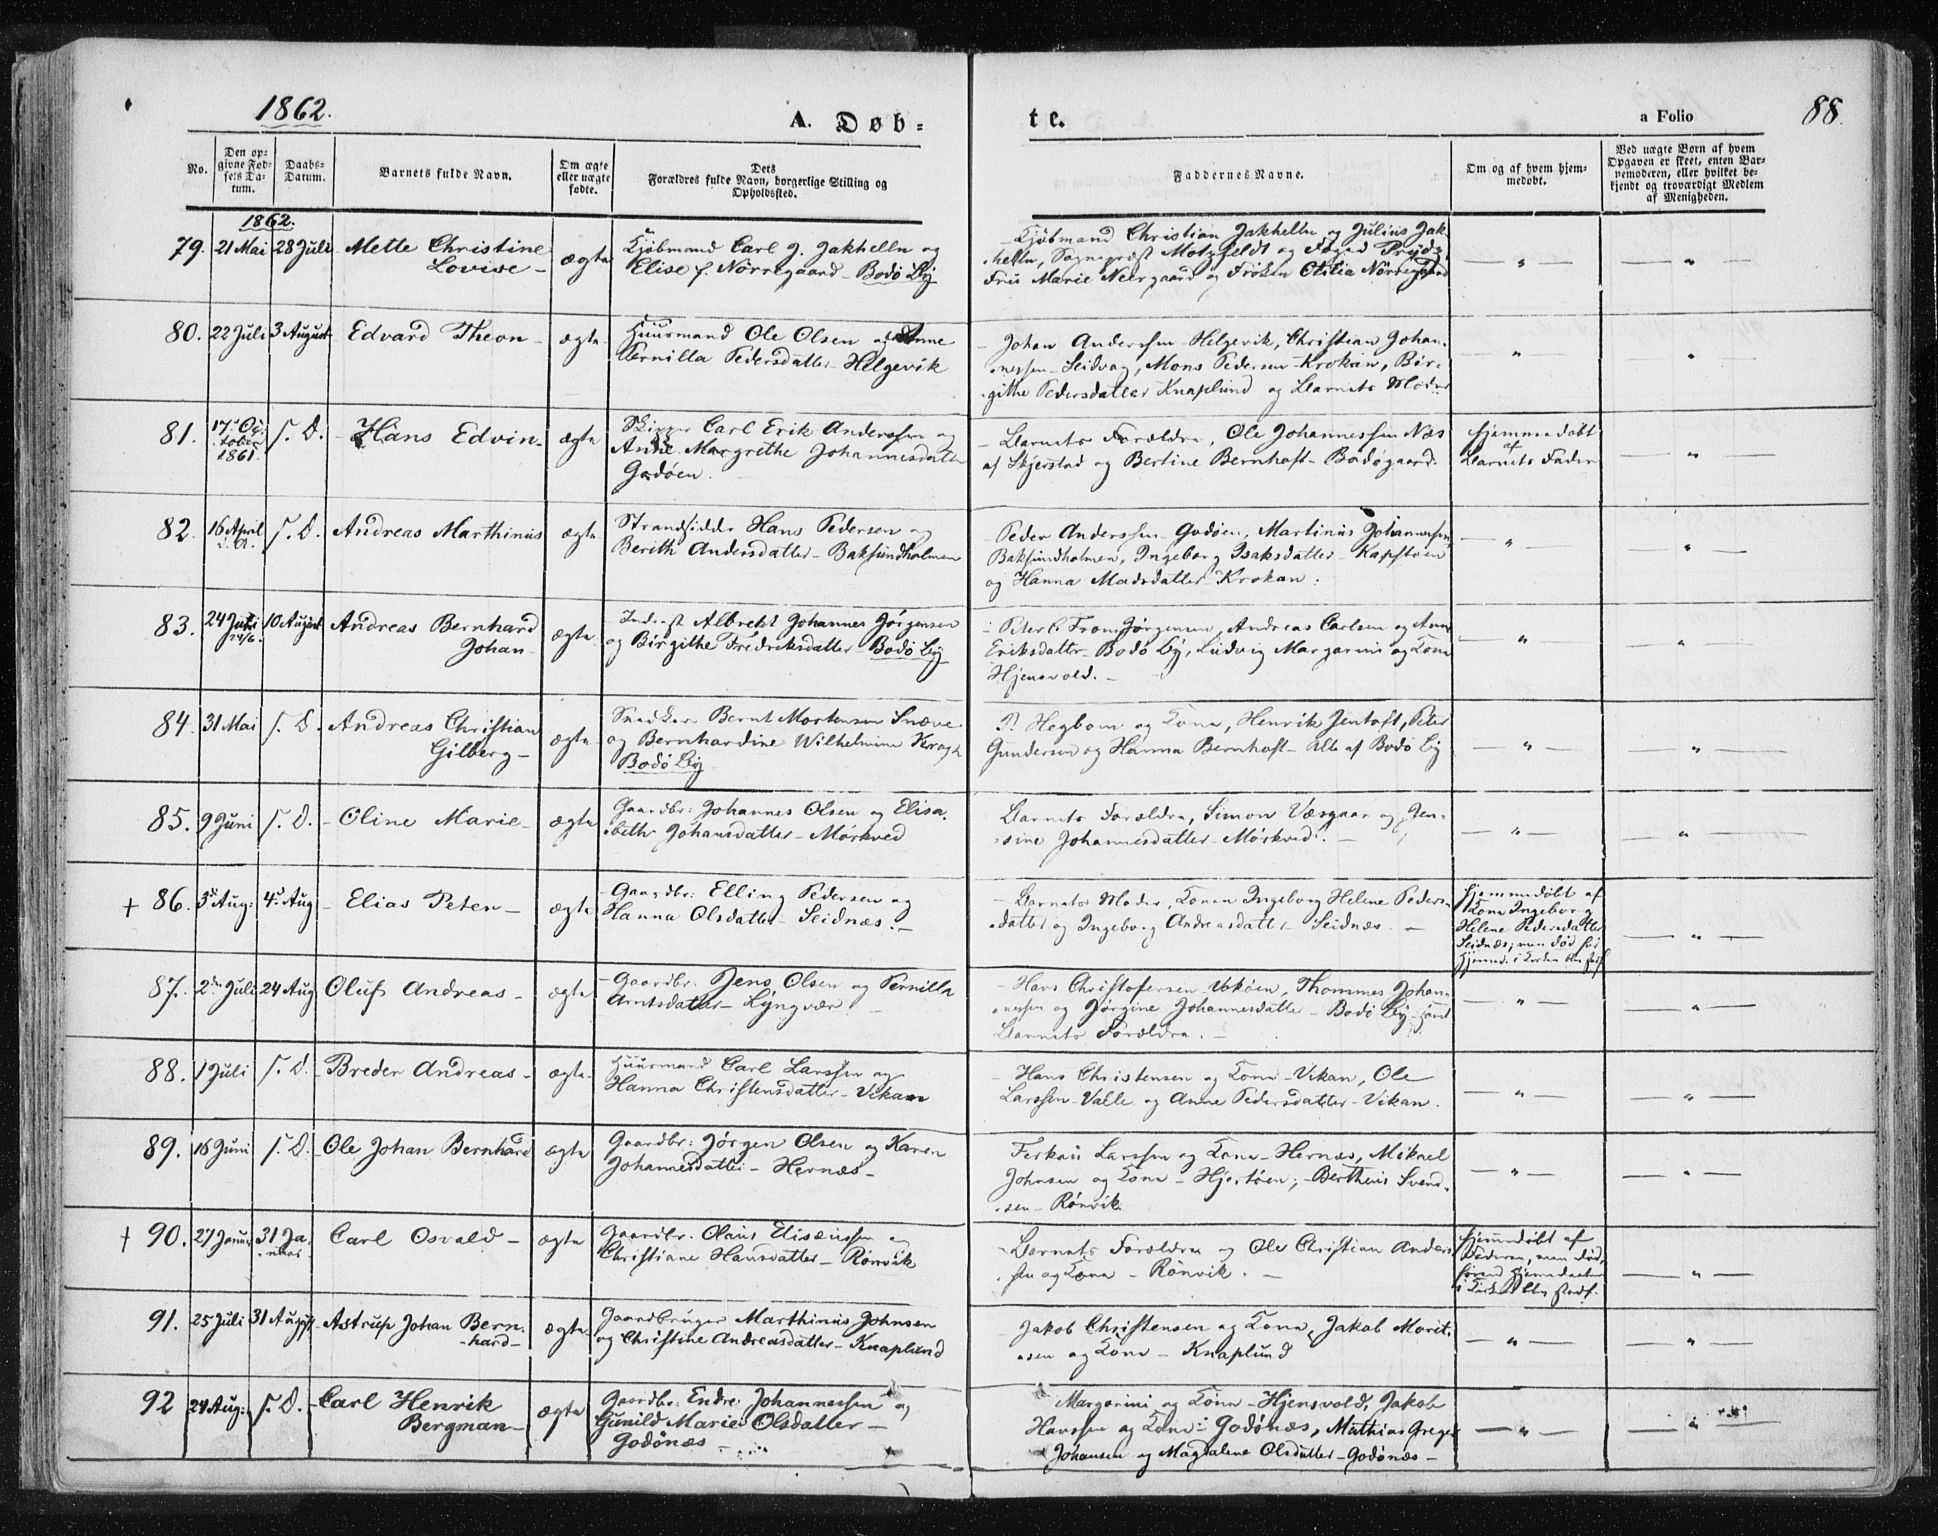 1862.
A. Døb=
te.
a Folio
88.
No.
Den op-
givne Fød-
sels Da-
tum.
Daabs-
Datum.
Barnets fulde Navn.
Om ægte
eller uægte
fødte.
Dets
Forældres fulde Navn, borgerlige Stilling og
Opholdssted.
Faddernes Navne.
Om og af hvem hjem-
medøbt.
Ved uægte Børn af hvem
Opgaven er skeet, enten Bar-
nemoderen, eller hvilket be-
kjendt og troværdigt Medlem
af Menigheden.
1862.
79. 21 Mai 28 Juli Mette Christine
Lovise-
ægte
Kjøbmand Carl J. Jakhelln og
Elise f. Nørregaard - Bodø By
- Kjøbmand Christian Jakhelln og Julius Jak-
helln, Sognepræst Motzfeldt og Foged Prydz,
Frue Marie Neergaard og Frøken Otilia Nørregaard
- " -
- " -
80. 22 Juli 3 August Edvard Theon-
ægte
Huusmand Ole Olsen og Anne
Pernilla Pedersdatter - Helgevik
- Johan Anderssen - Helgevik, Christian Johan-
nessen - Seidvag, Mons Pedersen - Krokan, Bir-
githe Pedersdatter Knaplund og Barnets Moder
"
- " -
81. 17de Oc-
tober
1861.
s. D. - Hans Edvin-
ægte
Skipper Carl Erik Anderssen og
Anne Margrethe Johannesdatter
Godøen.
- Barnets Forældre, Ole Johannessen Næs
af Skjerstad og Bertine Bernhoft - Bodøgaard.
Hjemmedøbt
af
Barnets Fader
- " -
82. 16 April
s. D. Andreas Marthinus
ægte
Strandsidder Hans Pedersen og
Berith Andersdatter - Baksundholmen
- Peder Anderssen - Godøen, Martinus Johannessen
Baksundholmen, Ingeborg Isaksdatter - Kapstoen
og Hanna Madsdatter - Krokan.
- " -
" -
83. 24 Juli
24/6.
10 August Andreas Bernhard
Johan-
ægte
Inderst Albrekt Johannes Jørgensen
og Birgithe Fredriksdatter - Bodø By
- Jørgensen, Andreas Carlsen og Anne
Eriksdatter - Bodø By, Ludvig Margarini og Kone
Hjensvold. -
- " -
" -
84. 31 Mai s. D. Andreas Christian
Gilberg-
ægte
Snedker Bernt Mortensen Snæve
og Bernhardine Wilhelmine Krogh
Bodø By
P. Hegbom og Kone, Henrik Jentoft, Peter
Gundersen og Hanna Bernhoft - Alle af Bodø By
- " -
- " -
85. 9 Juni s. D. - Oline Marie-
ægte
Gaardbr: Johannes Olsen og Elisa-
beth Johansdatter - Mørkved
Barnets Forældre, Simon Væsgaar og Jen-
sine Johannesdatter - Mørkved. -
- " -
- " -
+ 86. 3die Aug: 4de Aug - Elias Peter-
ægte
- Gaardbr: Elling Pedersen og
Hanna Olsdatter - Seidnæs. -
- Barnets Moder, Konen Ingeborg Helene Peders-
datter og Ingeborg Andreasdatter - Seidnæs. -
Hjemmedøbt af
Kone Ingeborg
Helene Pedersdatter
Seidnæs; men død før
- " -
87. 2den Juli 24 Aug. Oluf Andreas -
ægte
- Gaardbr: Jens Olsen og Pernilla
Arntsdatter - Lyngvær -
- Hans Christofersen - Vokøen, Thommes Johan-
nessen og Jørgine Johannesdatter - Bodø By samt
Barnets Forældre. -
- " -
- " -
88. 1 Juli s. D. - Breder Andreas -
ægte
Huusmand Carl Larssen og
Hanna Christensdatter - Vikan
- Hans Christensen og Kone - Vikan, Ole
Larssen - Valle og Anne Pedersdatter - Vikan.
- " -
- " -
89. 18 Juni s. D. - Ole Johan Bernhard
ægte
Gaardbr: Jørgen Olsen og Karen
Johannesdatter - Hernæs -
Larssen og Kone - Hernæs, Mikael
Johnsen og Kone - Hjertøen; - Bertheus Svend-
sen - Rønvik
- " -
- " -
+ 90. 27 Januar 31 Ja-
nuar
Carl Osvald -
ægte
Gaardbr. Olaus Eliseussen og
Christiane Hansdatter - Rønvik
- Barnets Forældre og Ole Christian Anders-
sen og Kone - Rønvik. -
Hjemmedøbt af
Faderen, men død,
- " -
91. 25 Juli 31 August - Astrup Johan Bern-
hard-
ægte
Gaardbruger Marthinus Johnsen
og Christine Andreasdatter - Knaplund
- Jakob Christensen og Kone, Jakob Morit-
sen og Kone - Knaplund
- " -
- " -
92 24 Aug: s. D. - Carl Henrik
Bergman-
ægte
Gaardbr: Endre Johannessen og
Gunild Marie Olsdatter -
Godønæs -
Margarini og Kone - Hjensvold, Jakob
Hanssen og Kone - Godønæs, Mathias Greger
Johansen og Magdalene Olsdatter - Godønæs -
- " -
- " -